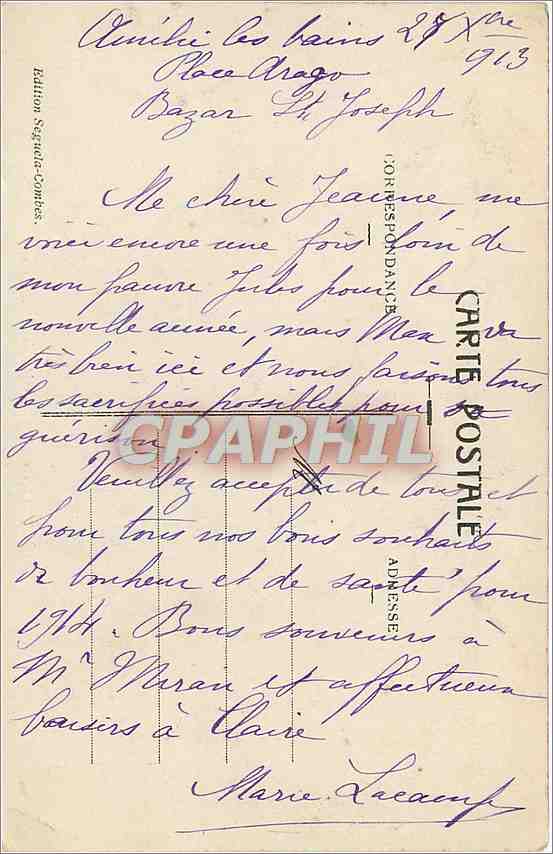 Amélie les bains 27 Xbre
1913
Place Arago
Bazar St Joseph
Edition Seguela-Combes.
CORRESPONDANCE
CARTE POSTALE
ADRESSE
Ma chère Jeanne, me
voici encore une fois loin de
mon pauvre Jules pour la
nouvelle année, mais Max va
très bien ici et nous faisons tous
les sacrifices possibles pour sa
guérison
CPAPHIL
Veuillez accepter de tous et
pour tous nos bons souhaits
de bonheur et de santé pour
1914. Bons souvenirs à
Mr et affectueux
baisers à Claire
Marie Lacamp